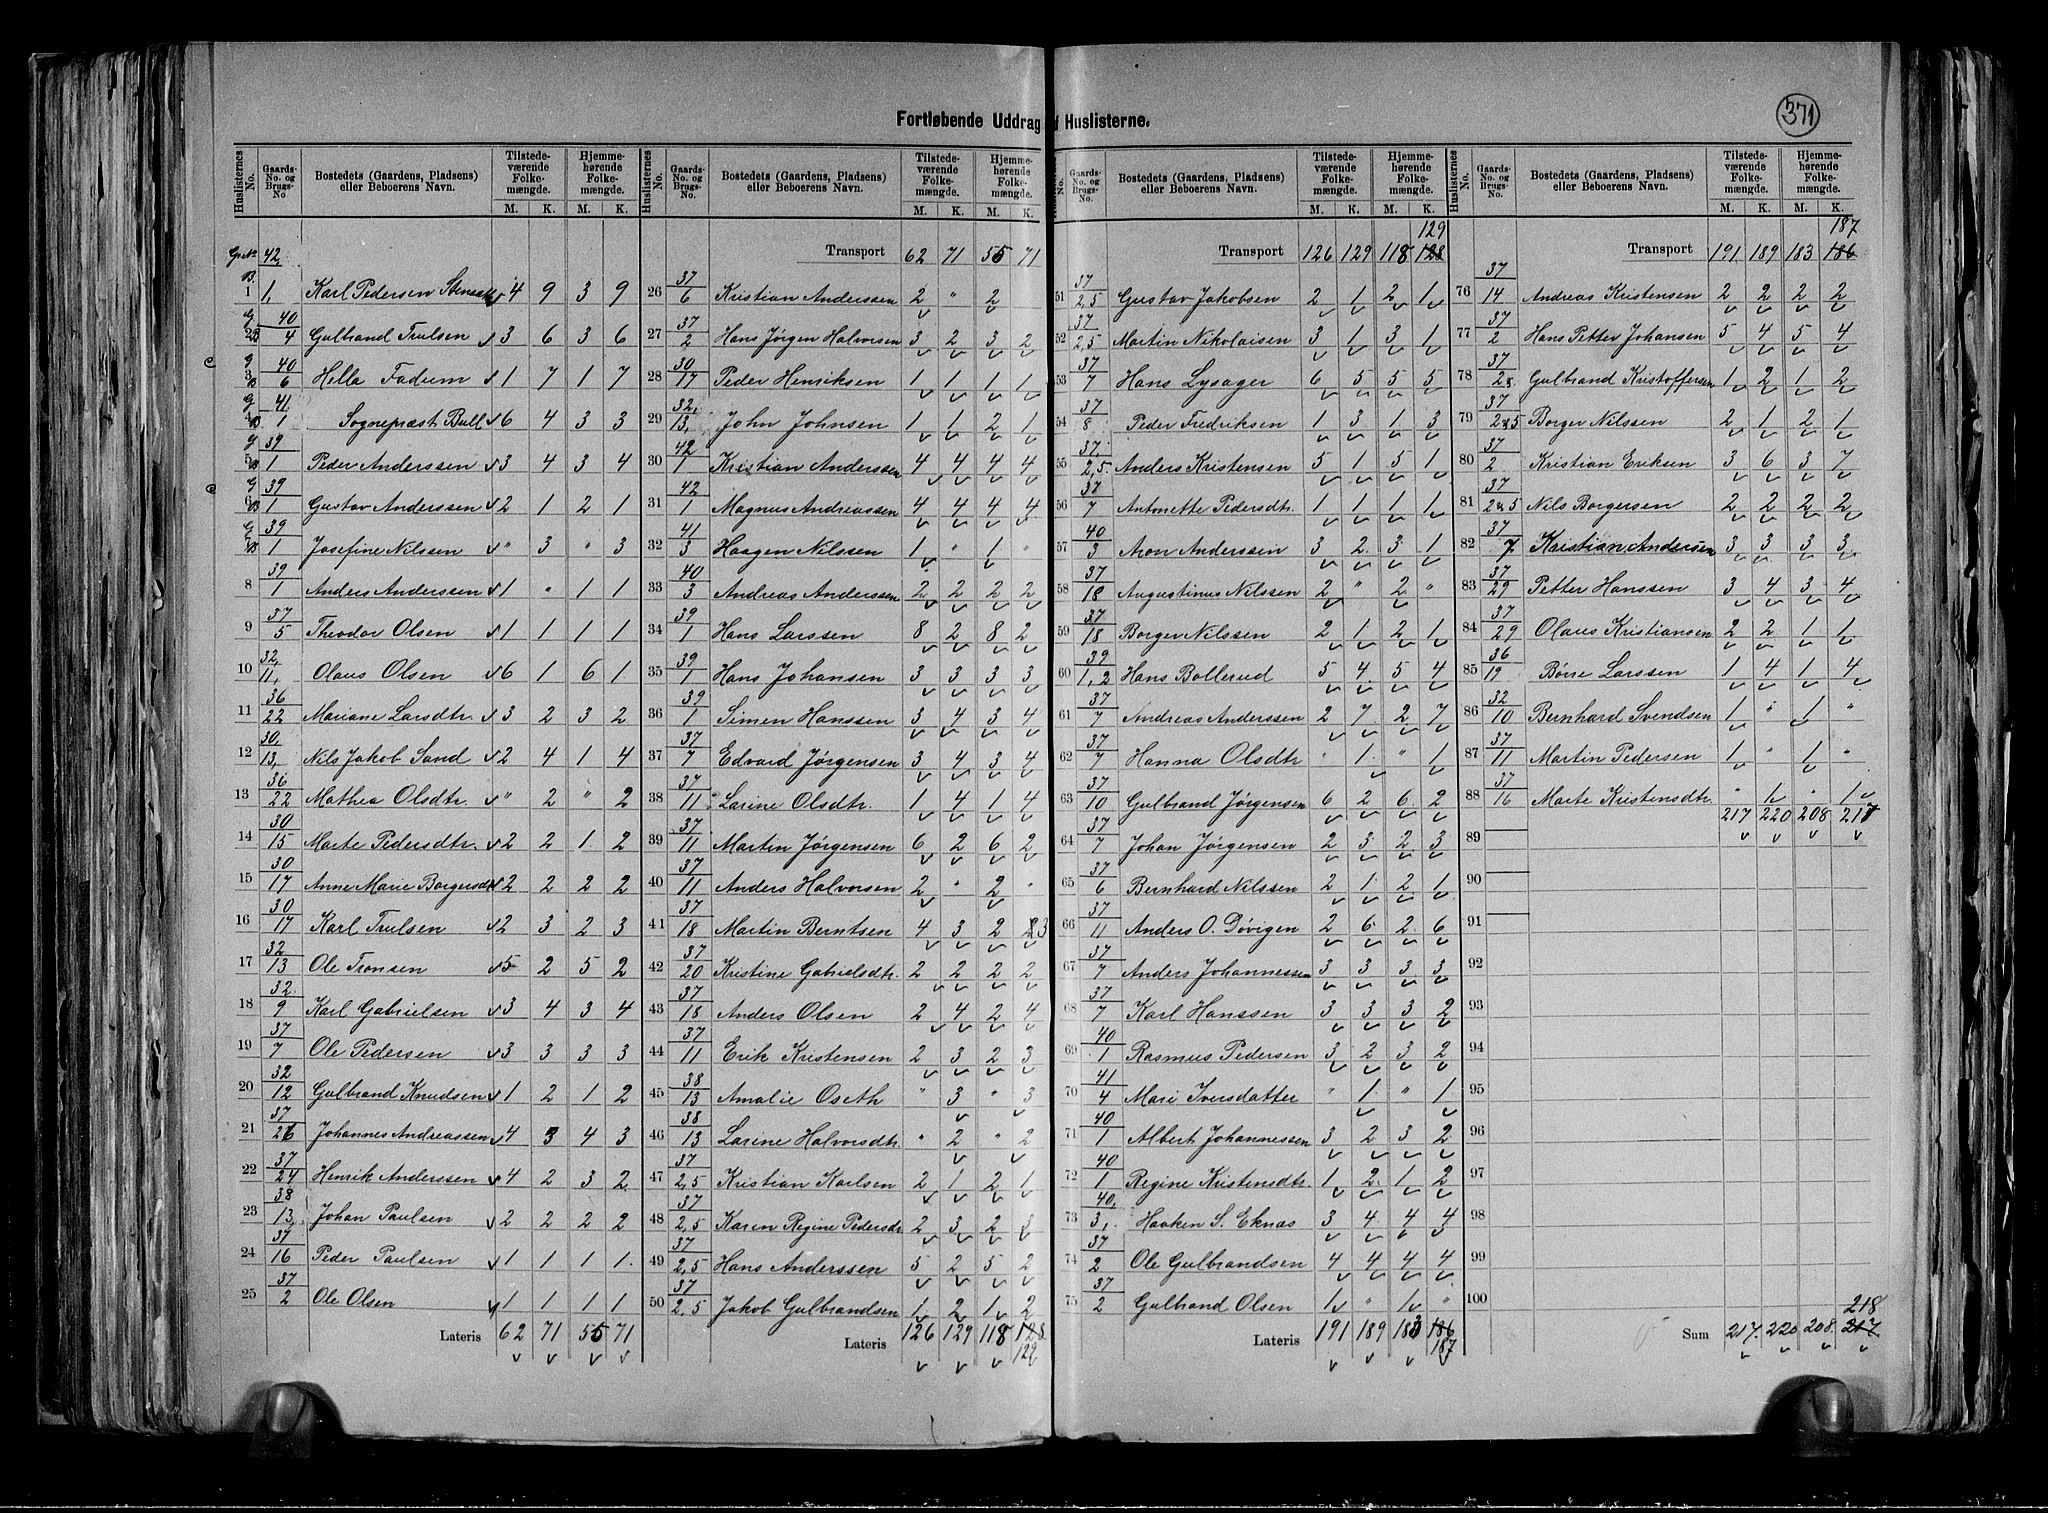 Fortløbende Uddrag af Huslisterne.
371
Huslisternes No. | Gaards-No. og Brugs-No | Bostedets (Gaardens, Pladsens) eller Beboerens Navn. | Tilstedeværende Folkemængde. M. K. | Hjemmehørende Folkemængde. M. K.
1 | 42/1, | Karl Pedersen | 4 | 9 | 3 | 9
2 | 40/4 | Gulbrand Trulsen | 3 | 6 | 3 | 6
3 | 40/6 | Hella Fadum | 1 | 7 | 1 | 7
4 | 41/1 | Sognepræst Bull | 6 | 4 | 3 | 3
5 | 39/1 | Peder Anderssen | 3 | 4 | 3 | 4
6 | 39/1 | Gustav Anderssen | 2 | 1 | 2 | 1
7 | 39/1 | Josefine Nilssen | " | 3 | " | 3
8 | 39/1 | Anders Anderssen | 1 | " | 1 | 1
9 | 37/5 | Theodor Olsen | 1 | 1 | 1 | 1
10 | 32,/11, | Olaus Olsen | 6 | 1 | 6 | 1
11 | 36/22 | Mariane Larsdtr. | 3 | 2 | 3 | 2
12 | 30,/13, | Nils Jakob Sand | 2 | 4 | 1 | 4
13 | 36/22 | Mathea Olsdtr. | " | 2 | " | 2
14 | 30/15 | Marte Pedersdtr. | 2 | 2 | 1 | 2
15 | 30/17 | Anne Marie Borgersdtr | 2 | 2 | 2 | 2
16 | 30/17 | Karl Trulsen | 2 | 3 | 2 | 3
17 | 32/13 | Ole Tronsen | 5 | 2 | 5 | 2
18 | 32/9 | Karl Gabrielsen | 3 | 4 | 3 | 4
19 | 37/7 | Ole Pedersen | 3 | 3 | 3 | 3
20 | 32/12 | Gulbrand Knudsen | 1 | 2 | 1 | 2
21 | 37/26 | Johannes Andreassen | 4 | 3 | 4 | 3
22 | 37/24 | Henrik Anderssen | 4 | 2 | 3 | 2
23 | 38/13, | Johan Paulsen | 2 | 2 | 2 | 2
24 | 37/16 | Peder Paulsen | 1 | 1 | 1 | 1
25 | 37/2 | Ole Olsen | 1 | 1 | 1 | 1
Lateris | 62 | 71 | 55 | 71
Huslisternes No. | Gaards-No. og Brugs-No. | Bostedets (Gaardens, Pladsens) eller Beboerens Navn. | Tilstedeværende Folkemængde. M. K. | Hjemmehørende Folkemængde. M. K.
Transport | 62 | 71 | 55 | 71
26 | 37/6 | Kristian Anderssen | 2 | " | 2
27 | 37/2 | Hans Jørgen Halvorsen | 3 | 2 | 3 | 2
28 | 30/17 | Peder Henriksen | 1 | 1 | 1 | 1
29 | 32,/13, | John Johnsen | 1 | 1 | 2 | 1
30 | 42/1 | Kristian Anderssen | 4 | 4 | 4 | 4
31 | 42/1 | Magnus Andreassen | 4 | 4 | 4 | 4
32 | 41/3 | Haagen Nilssen | 1 | " | 1 | "
33 | 40/3 | Andreas Anderssen | 2 | 2 | 2 | 2
34 | 39/1 | Hans Larssen | 8 | 2 | 8 | 2
35 | 39/1 | Hans Johansen | 3 | 3 | 3 | 3
36 | 39/1 | Simen Hanssen | 3 | 4 | 3 | 4
37 | 37/7 | Edvard Jørgensen | 3 | 4 | 3 | 4
38 | 37/11 | Larine Olsdtr. | 1 | 4 | 1 | 4
39 | 37/11 | Martin Jørgensen | 6 | 2 | 6 | 2
40 | 37/11 | Anders Halvorsen | 2 | " | 2 | "
41 | 37/18 | Martin Berntsen | 4 | 3 | 2 | 3
42 | 37/20 | Kristine Gabrielsdtr. | 2 | 2 | 2 | 2
43 | 37/18 | Anders Olsen | 2 | 4 | 2 | 4
44 | 37/11 | Erik Kristensen | 2 | 3 | 2 | 3
45 | 38/13 | Amalie Oseth | " | 3 | " | 3
46 | 38/13 | Larine Halvorsdtr. | " | 2 | " | 2
47 | 37/2,5 | Kristian Karlsen | 2 | 1 | 2 | 1
48 | 37/2,5 | Karen Regine Pedersdr. | 2 | 3 | 2 | 3
49 | 37/2,5 | Hans Anderssen | 5 | 2 | 5 | 2
50 | 37/2,5 | Jakob Gulbrandsen | 1 | 2 | 1 | 2
Lateris | 126 | 129 | 118 | 128 129
Huslisternes No. | Gaards-No. og Brugs-No. | Bostedets (Gaardens, Pladsens) eller Beboerens Navn. | Tilstedeværende Folkemængde. M. K. | Hjemmehørende Folkemængde. M. K.
Transport | 126 | 129 | 118 | 128 129
51 | 37/2,5 | Gustav Jakobsen | 2 | 1 | 2 | 1
52 | 37/2,5 | Martin Nikolaisen | 3 | 1 | 3 | 1
53 | 37/7 | Hans Lysager | 6 | 5 | 5 | 5
54 | 37/8 | Peder Fredriksen | 1 | 3 | 1 | 3
55 | 37,/2,5 | Anders Kristensen | 5 | 1 | 5 | 1
56 | 37/7 | Antonette Pedersdtr. | 1 | 1 | 1 | 1
57 | 40/3 | Aron Anderssen | 3 | 2 | 3 | 1
58 | 37/18 | Augustinus Nilssen | 2 | " | 2 | "
59 | 37/18 | Borger Nilssen | 2 | 1 | 2 | 1
60 | 39/1,2 | Hans Bollerud | 5 | 4 | 5 | 4
61 | 37/7 | Andreas Anderssen | 2 | 7 | 2 | 7
62 | 37/7 | Hanna Olsdtr | " | 1 | " | 1
63 | 37/10 | Gulbrand Jørgensen | 6 | 2 | 6 | 2
64 | 37/7 | Johan Jørgensen | 2 | 3 | 2 | 3
65 | 37/6 | Bernhard Nilssen | 2 | 1 | 2 | 1
66 | 37/11 | Anders O. Døvigen | 2 | 6 | 2 | 6
67 | 37/7 | Anders Johannessen | 3 | 3 | 3 | 3
68 | 37/7 | Karl Hanssen | 3 | 3 | 3 | 2
69 | 40/1 | Rasmus Pedersen | 3 | 2 | 3 | 2
70 | 41/4 | Mari Iversdatter | " | 1 | " | 1
71 | 40/1 | Albert Johannessen | 3 | 2 | 3 | 2
72 | 40/1 | Regine Kristensdtr. | 1 | 2 | 1 | 2
73 | 40,/3, | Haaken S. Eknæs | 3 | 4 | 4 | 4
74 | 37/2 | Ole Gulbrandsen | 4 | 4 | 4 | 4
75 | 37/2 | Gulbrand Olsen | 1 | " | 1 | "
Lateris | 191 | 189 | 183 | 186 187
Huslisternes No. | Gaards-No. og Brugs-No. | Bostedets (Gaardens, Pladsens) eller Beboerens Navn. | Tilstedeværende Folkemængde. M. K. | Hjemmehørende Folkemængde. M. K.
Transport | 191 | 189 | 183 | 186 187
76 | 37/14 | Andreas Kristensen | 2 | 2 | 2 | 2
77 | 37/2 | Hans Petter Johansen | 5 | 4 | 5 | 4
78 | 37/2 | Gulbrand Kristoffersen | 1 | 2 | 1 | 2
79 | 37/2&5 | Borger Nilssen | 2 | 1 | 2 | 1
80 | 37/2 | Kristian Eriksen | 3 | 6 | 3 | 7
81 | 37/2&5 | Nils Borgersen | 2 | 2 | 2 | 2
82 | 37/7 | Kristian Andersen | 3 | 3 | 3 | 3
83 | 37/29 | Petter Hanssen | 3 | 4 | 3 | 4
84 | 37/29 | Olaus Kristiansen | 2 | 2 | 1 | 1
85 | 36/19 | Børre Larssen | 1 | 4 | 1 | 4
86 | 32/10 | Bernhard Svendsen | 1 | " | 1 | "
87 | 37/11 | Martin Pedersen | 1 | " | 1 | "
88 | 37/16 | Marte Kristensdtr. | " | 1 | " | 1
89 | 217 | 220 | 208 | 217
90
91
92
93
94
95
96
97
98
99
100
Sum | 217. | 220 | 208. | 217 218